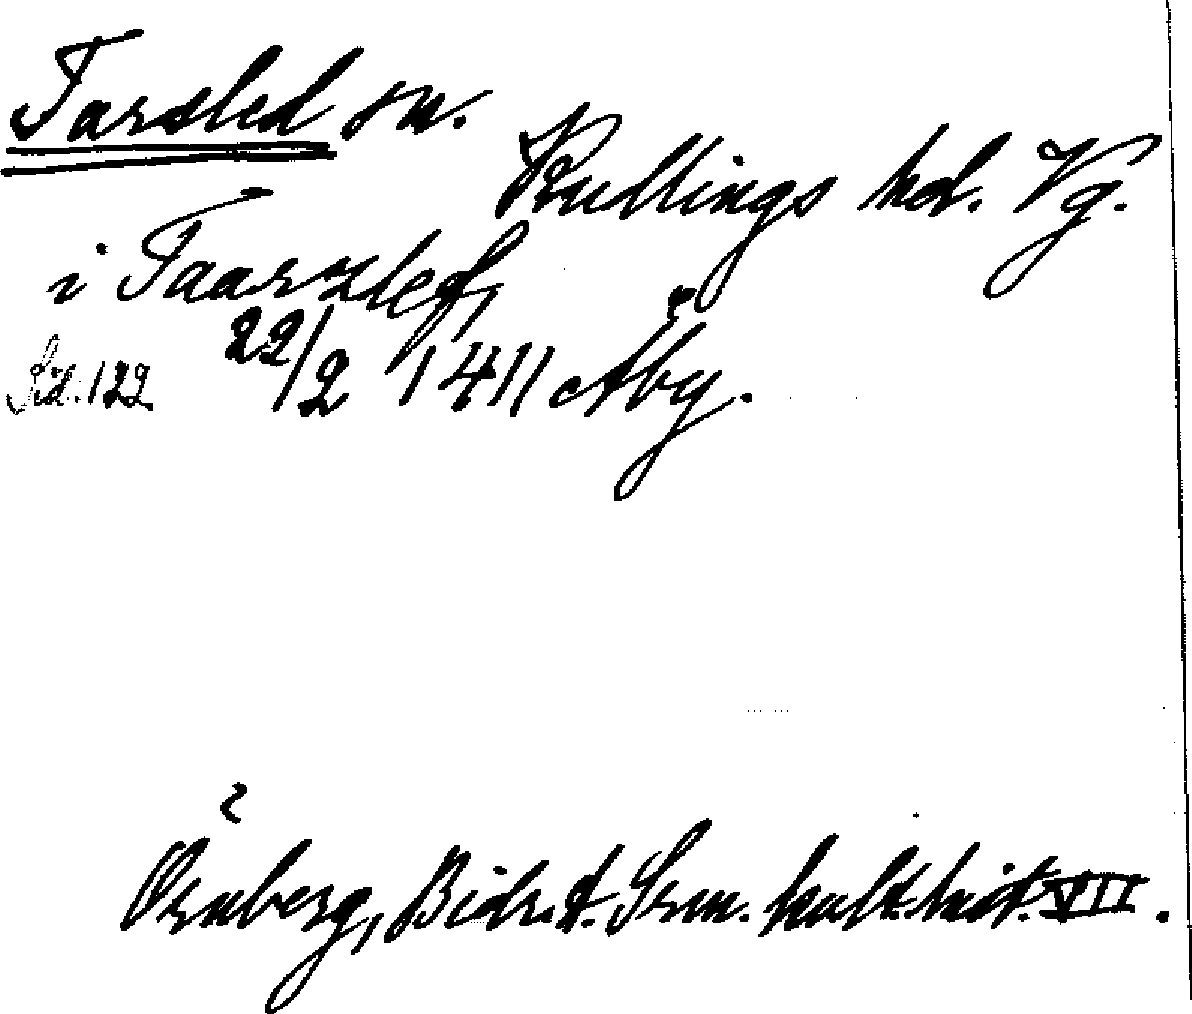 Tarsled sn.
Kullings hd. Vg.
i Taarsled,
Sid. 122 22/2 1411 Aby.
Örnberg, Bidr. t. Srm. kult. hist. VII.